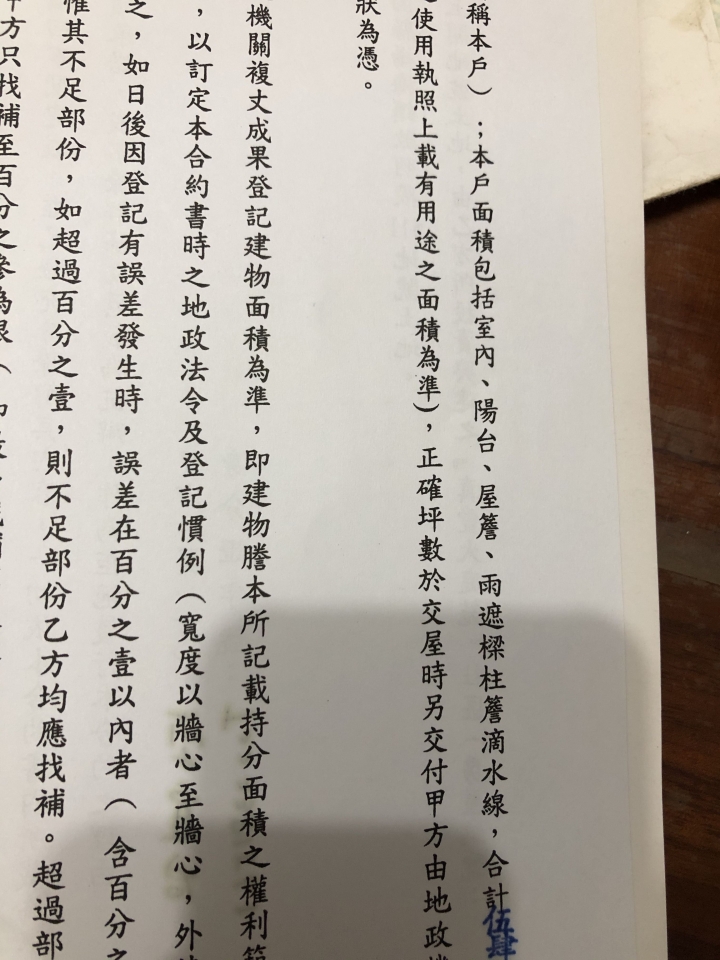 稱本戶）；本戶面積包括室內、陽台、屋簷、雨遮樑柱簷滴水線，合計伍肆
使用執照上載有用途之面積為準），正確坪數於交屋時另交付甲方由地政機
狀為憑。
機關複丈成果登記建物面積為準，即建物謄本所記載持分面積之權利範
，以訂定本合約書時之地政法令及登記慣例（寬度以牆心至牆心，外
之，如日後因登記有誤差發生時，誤差在百分之壹以內者（含百分之
惟其不足部份，如超過百分之壹，則不足部份乙方均應找補。超過部
方只找補至百分之參為限（